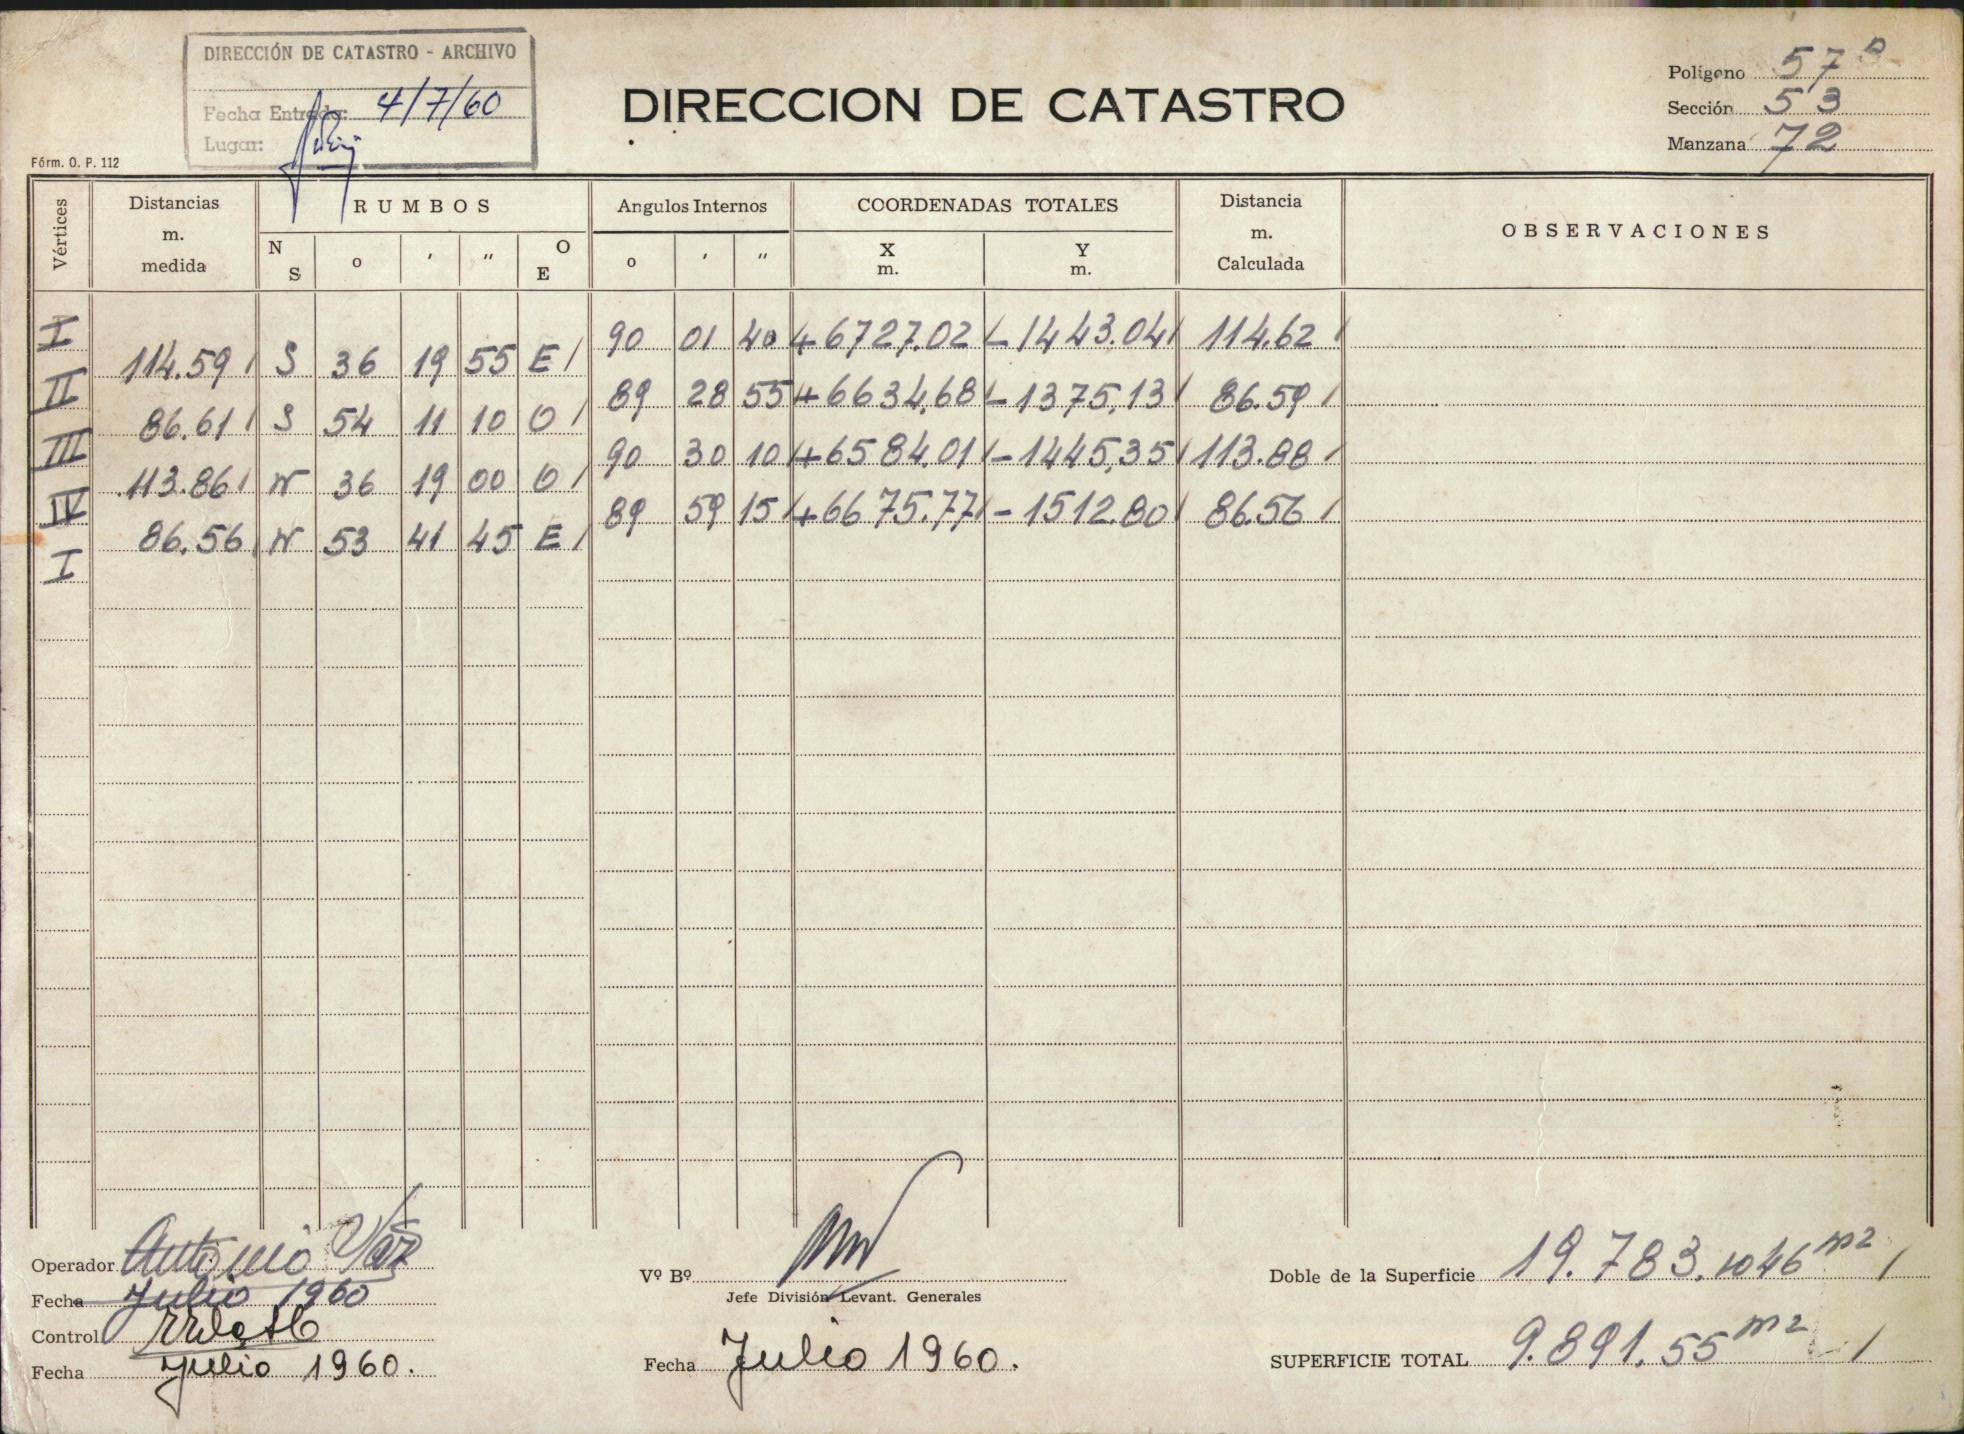 DIRECCIÓN DE CATASTRO - ARCHIVO
Fecha Entrada: 4/7/60
Lugar:
Fórm. O. P. 112
DIRECCION DE CATASTRO
Polígono 57 D
Sección 53
Manzana 72
Vértices
Distancias m. medida
RUMBOS
N S o ′ ″ O E
Angulos Internos
o ′ ″
COORDENADAS TOTALES
X m. Y m.
Distancia m. Calculada
OBSERVACIONES
I 90 01 40 +6727.02 -1443.04 114.62
114.59 S 36 19 55 E
II 89 28 55 +6634.68 -1375.13 86.59
86.61 S 54 11 10 O
III 90 30 10 +6584.01 -1445.35 113.88
113.86 N 36 19 00 O
IV 89 59 15 +6675.77 -1512.80 86.56
86.56 N 53 41 45 E
I
Operador Antonio Váz
Fecha Julio 1960
Control
Fecha Julio 1960.
Vº Bº
Jefe División Levant. Generales
Fecha Julio 1960.
Doble de la Superficie 19.783.1046 m2
SUPERFICIE TOTAL 9.891.55 m2